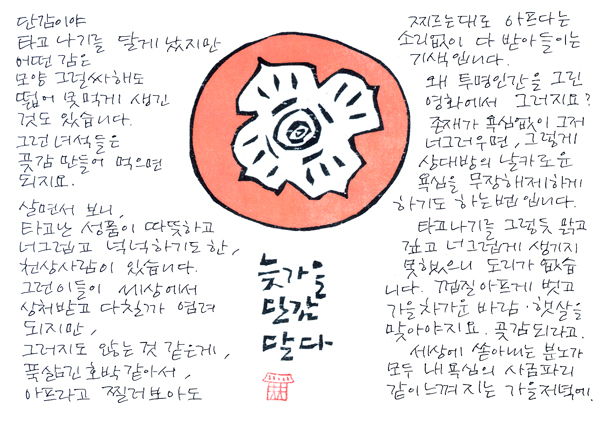 단감이야
타고나기를 달게 났지만
어떤 감은
모양 그럴싸해도
떫어 못먹게 생긴
것도 있습니다.
그런 녀석들은
곶감 만들어 먹으면
되지요.
살면서 보니,
타고난 성품이 따뜻하고
너그럽고 넉넉하기도 한,
천상사람이 있습니다.
그런이들이 세상에서
상처받고 다칠까 염려
되지만,
그러지도 않는것 같은게,
푹삶긴 호박같아서,
아프라고 찔러보아도
찌르는대로 아프다는
소리없이 다 받아들이는
기색입니다.
왜 투명인간을 그린
영화에서 그러지요?
존재가 욕심없이 그저
너그러우면, 그렇게
상대방의 날카로운
욕심을 무장해제하게
하기도 하는 법입니다.
타고나기를 그렇듯 맑고
깊고 너그럽게 생기지
못했으니 도리가 없습
니다. 껍질아프게 벗고
가을차가운 바람·햇살을
맞아야지요. 곶감되라고.
세상에 쏟아내는 분노가
모두 내 욕심의 사금파리
같이 느껴지는 가을저녁에.
늦가을
단감
달다